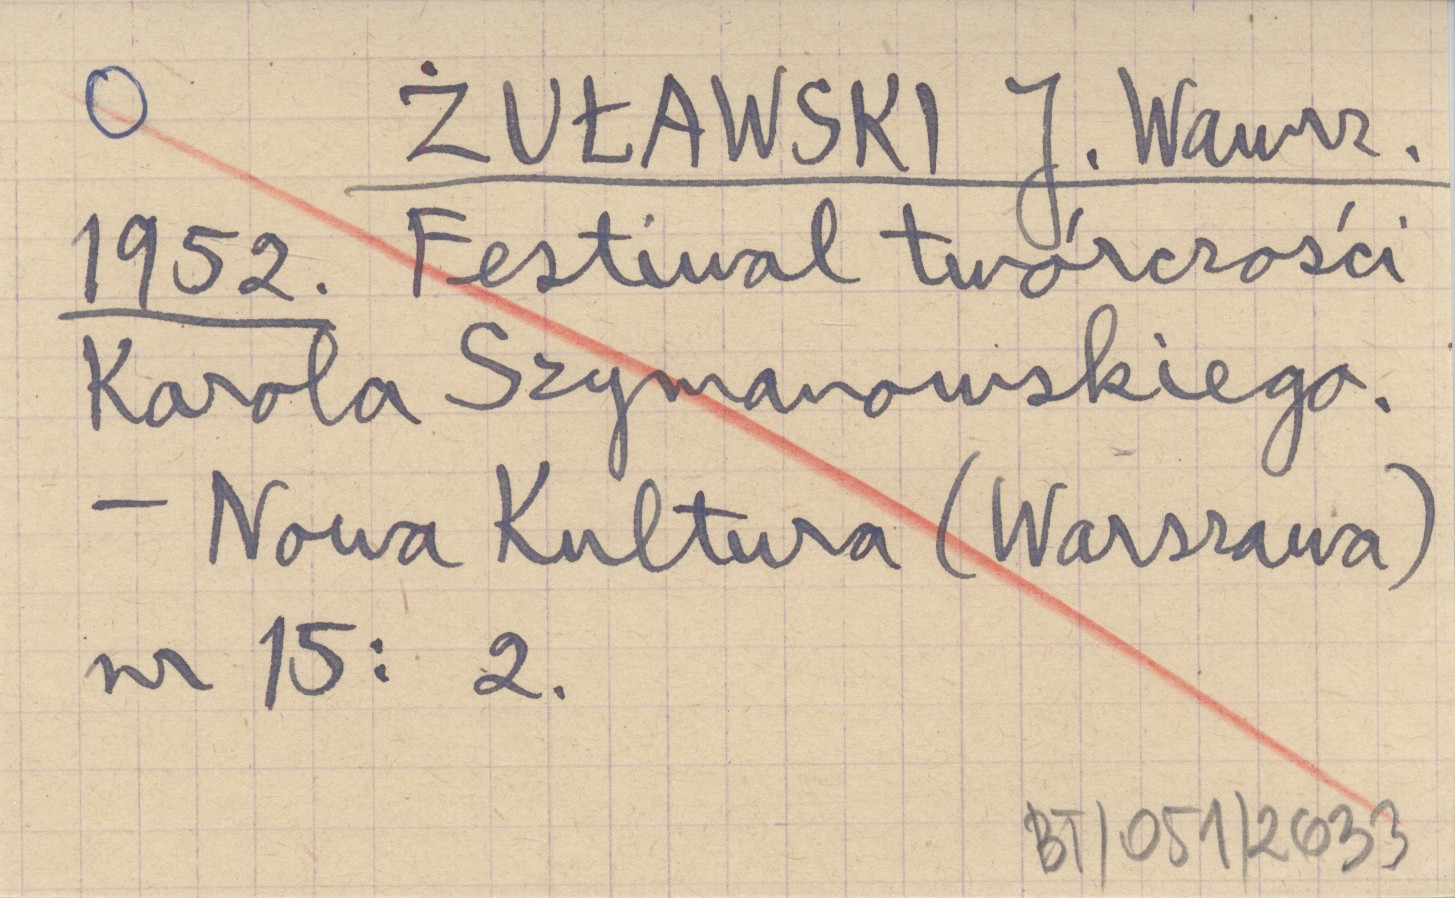 O ŻUŁAWSKI J. Wawrz.
1952. Festiwal twórczości
Karola Szymanowskiego.
— Nowa Kultura (Warszawa)
nr 15: 2.
BT/051/2033